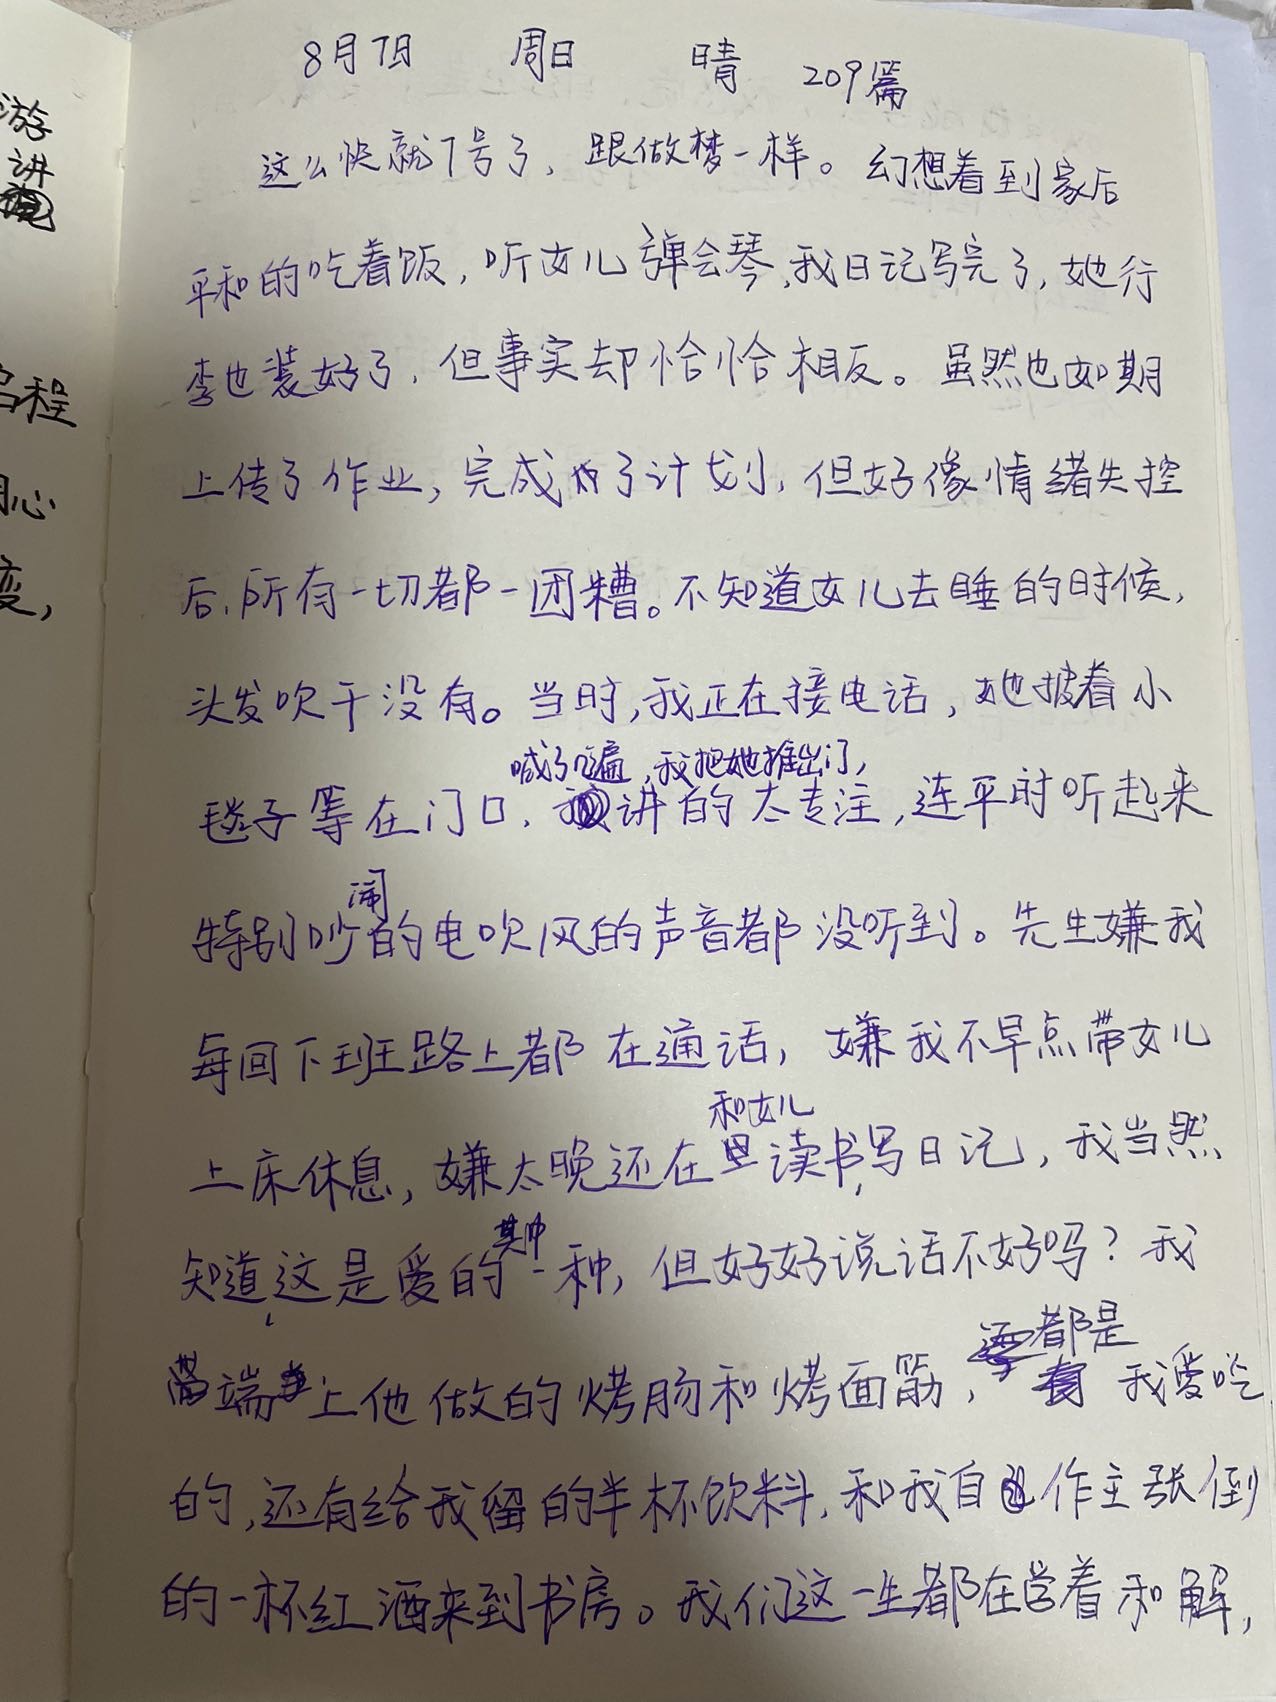 游
讲
启程
心
变，
8月7日 周日 晴 209篇
这么快就7号了，跟做梦一样。幻想着到家后
平和的吃着饭，听女儿弹会琴，我日记写完了，她行
李也装好了，但事实却恰恰相反。虽然也如期
上传了作业，完成了计划，但好像情绪失控
后，所有一切都一团糟。不知道女儿去睡的时候，
头发吹干没有。当时，我正在接电话，她披着小
喊了几遍，我把她推出门，
毯子等在门口，讲的太专注，连平时听起来
闹
特别吵的电吹风的声音都没听到。先生嫌我
每回下班路上都在通话，嫌我不早点带女儿
和女儿
上床休息，嫌太晚还在读书，写日记，我当然
其中
知道，这是爱的一种，但好好说话不好吗？我
都是
端上他做的烤肠和烤面筋，我爱吃
的，还有给我留的半杯饮料，和我自作主张倒
的一杯红酒来到书房。我们这一生都在尝着和解，